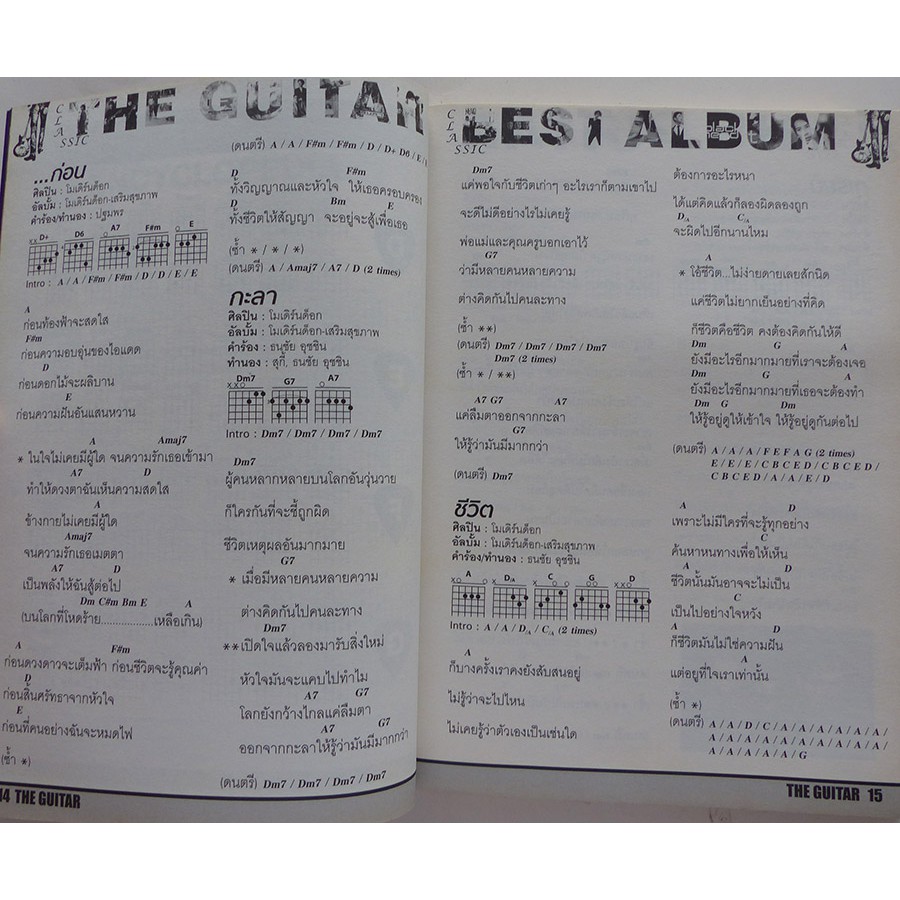 CLASSIC
THE GUITAR
...ก่อน
ศิลปิน : โมเดิร์นด็อก
อัลบั้ม : โมเดิร์นด็อก-เสริมสุขภาพ
คำร้อง/ทำนอง : ปฐมพร
D+ D6 A7 F#m E
Intro : A / A / F#m / F#m / D / D / E / E
A
ก่อนท้องฟ้าจะสดใส
F#m
ก่อนความอบอุ่นของไอแดด
D
ก่อนดอกไม้จะผลิบาน
E
ก่อนความฝันอันแสนหวาน
A Amaj7
* ในใจไม่เคยมีผู้ใด จนความรักเธอเข้ามา
A7 D
ทำให้ดวงตาฉันเห็นความสดใส
A
ข้างกายไม่เคยมีผู้ใด
Amaj7
จนความรักเธอเมตตา
A7 D
เป็นพลังให้ฉันสู้ต่อไป
Dm C#m Bm E A
(บนโลกที่โหดร้าย..................เหลือเกิน)
A F#m
ก่อนดวงดาวจะเต็มฟ้า ก่อนชีวิตจะรู้คุณค่า
D
ก่อนสิ้นศรัทธาจากหัวใจ
E
ก่อนที่คนอย่างฉันจะหมดไฟ
(ซ้ำ *)
(ดนตรี) A / A / F#m / F#m / D / D+ D6 / E / E
D F#m
ทั้งวิญญาณและหัวใจ ให้เธอครอบครอง
D Bm E
ทั้งชีวิตให้สัญญา จะอยู่จะสู้เพื่อเธอ
(ซ้ำ * / * / *)
(ดนตรี) A / Amaj7 / A7 / D (2 times)
กะลา
ศิลปิน : โมเดิร์นด็อก
อัลบั้ม : โมเดิร์นด็อก-เสริมสุขภาพ
คำร้อง : ธนชัย อุชชิน
ทำนอง : สุกี้, ธนชัย อุชชิน
Dm7 G7 A7
Intro : Dm7 / Dm7 / Dm7 / Dm7
Dm7
ผู้คนหลากหลายบนโลกอันวุ่นวาย
ก็ใครกันที่จะชี้ถูกผิด
ชีวิตเหตุผลอันมากมาย
G7
* เมื่อมีหลายคนหลายความ
ต่างคิดกันไปคนละทาง
Dm7
**เปิดใจแล้วลองมารับสิ่งใหม่
หัวใจมันจะแคบไปทำไม
A7 G7
โลกยังกว้างไกลแค่ลืมตา
A7 G7
ออกจากกะลาให้รู้ว่ามันมีมากกว่า
(ดนตรี) Dm7 / Dm7 / Dm7 / Dm7
14 THE GUITAR
CLASSIC
BEST ALBUM
Dm7
แค่พอใจกับชีวิตเก่าๆ อะไรเราก็ตามเขาไป
จะดีไม่ดีอย่างไรไม่เคยรู้
พ่อแม่และคุณครูบอกเอาไว้
G7
ว่ามีหลายคนหลายความ
ต่างคิดกันไปคนละทาง
(ซ้ำ **)
(ดนตรี) Dm7 / Dm7 / Dm7 / Dm7
Dm7 (2 times)
(ซ้ำ * / **)
A7 G7 A7
แค่ลืมตาออกจากกะลา
G7
ให้รู้ว่ามันมีมากกว่า
(ดนตรี) Dm7
ชีวิต
ศิลปิน : โมเดิร์นด็อก
อัลบั้ม : โมเดิร์นด็อก-เสริมสุขภาพ
คำร้อง/ทำนอง : ธนชัย อุชชิน
A D/A C G D
Intro : A / A / D/A / C/A (2 times)
A
ก็บางครั้งเราคงยังสับสนอยู่
ไม่รู้ว่าจะไปไหน
ไม่เคยรู้ว่าตัวเองเป็นเช่นใด
ต้องการอะไรหนา
ได้แต่คิดแล้วก็ลองผิดลองถูก
D/A C/A
จะผิดไปอีกนานไหม
A
* โอ้ชีวิต...ไม่ง่ายดายเลยสักนิด
แค่ชีวิตไม่ยากเย็นอย่างที่คิด
ก็ชีวิตคือชีวิต คงต้องคิดกันให้ดี
Dm G A
ยังมีอะไรอีกมากมายที่เราจะต้องเจอ
Dm G A
ยังมีอะไรอีกมากมายที่เธอจะต้องทำ
Dm G Dm
ให้รู้อยู่ดูให้เข้าใจ ให้รู้อยู่ดูกันต่อไป
(ดนตรี) A / A / A / F E F A G (2 times)
E / E / E / C B C E D / C B C E D /
C B C E D / A / A / E / D
A D
เพราะไม่มีใครที่จะรู้ทุกอย่าง
C
ค้นหาหนทางเพื่อให้เห็น
A D
ชีวิตนั้นมันอาจจะไม่เป็น
C
เป็นไปอย่างใจหวัง
A D
ก็ชีวิตมันไม่ใช่ความฝัน
A
แต่อยู่ที่ใจเราเท่านั้น
(ซ้ำ *)
(ดนตรี) A / A / D / C / A / A / A / A / A /
/ A / A / A / A / A / A / A / A / A / A /
A / A / A / A / A / G
THE GUITAR 15